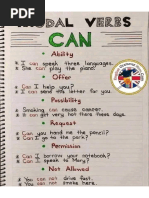 MODAL VERBS
CAN
Ability
I can speak three languages.
She can play the piano.
Offer
Can I help you?
I can send the letter for you.
Possibility
Smoking can cause cancer.
It can get very hot there these days.
Request
Can you hand me the pencil?
Can you go to the park?
Permission
Can I borrow your notebook?
Can I speak to Mary?
Not Allowed
You can not drive fast.
You can not smoke here.